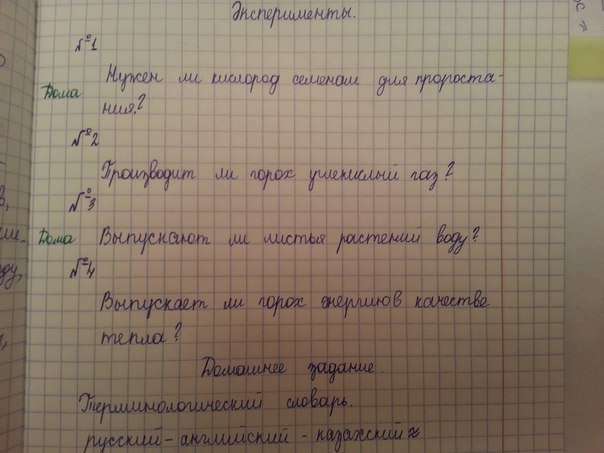 Эксперименты.
№1
Дома Нужен ли кислород семенам для пророста-
ния?
№2
Производит ли горох углекислый газ?
№3
Дома Выпускают ли листья растений воду?
№4
Выпускает ли горох энергию в качестве
тепла?
Домашнее задание
Терминологический словарь.
русский - английский - казахский